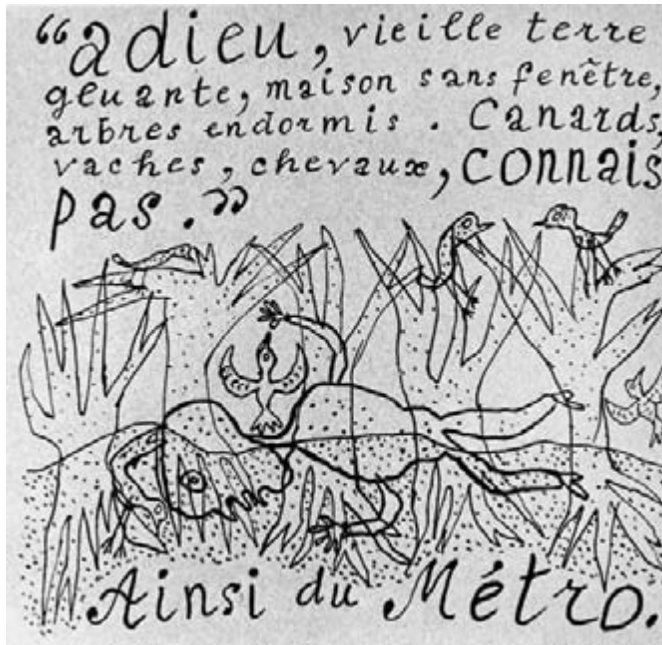 “adieu, vieille terre
geuante, maison sans fenêtre,
arbres endormis. Canards,
vaches, chevaux, connais
pas.”
Ainsi du Métro.